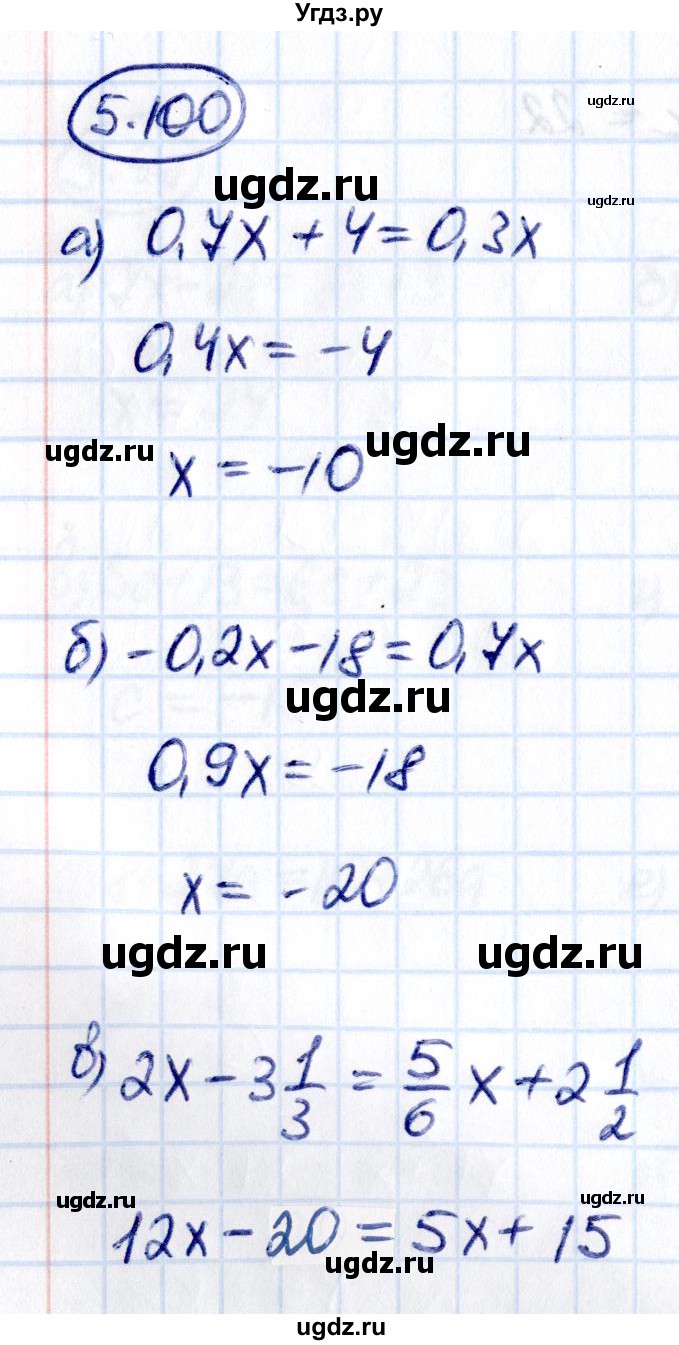 Угдз.ру
5.100
ugdz.ru
ugdz.ru
ugdz.ru
а) 0,7x + 4 = 0,3x
0,4x = -4
ugdz.ru
ugdz.ru
x = -10
б) -0,2x - 18 = 0,7x
ugdz.ru
0,9x = -18
x = -20
ugdz.ru
ugdz.ru
в) 2x - 3 1/3 = 5/6 x + 2 1/2
ugdz.ru
ugdz.ru
12x - 20 = 5x + 15
ugdz.ru
ugdz.ru